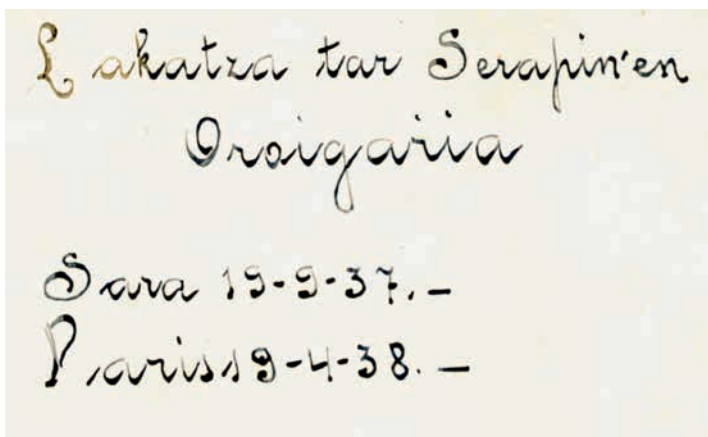 Lakatza tar Serapin'en
Oroigaŕia
Sara 19-9-37.-
Paris 19-4-38.-